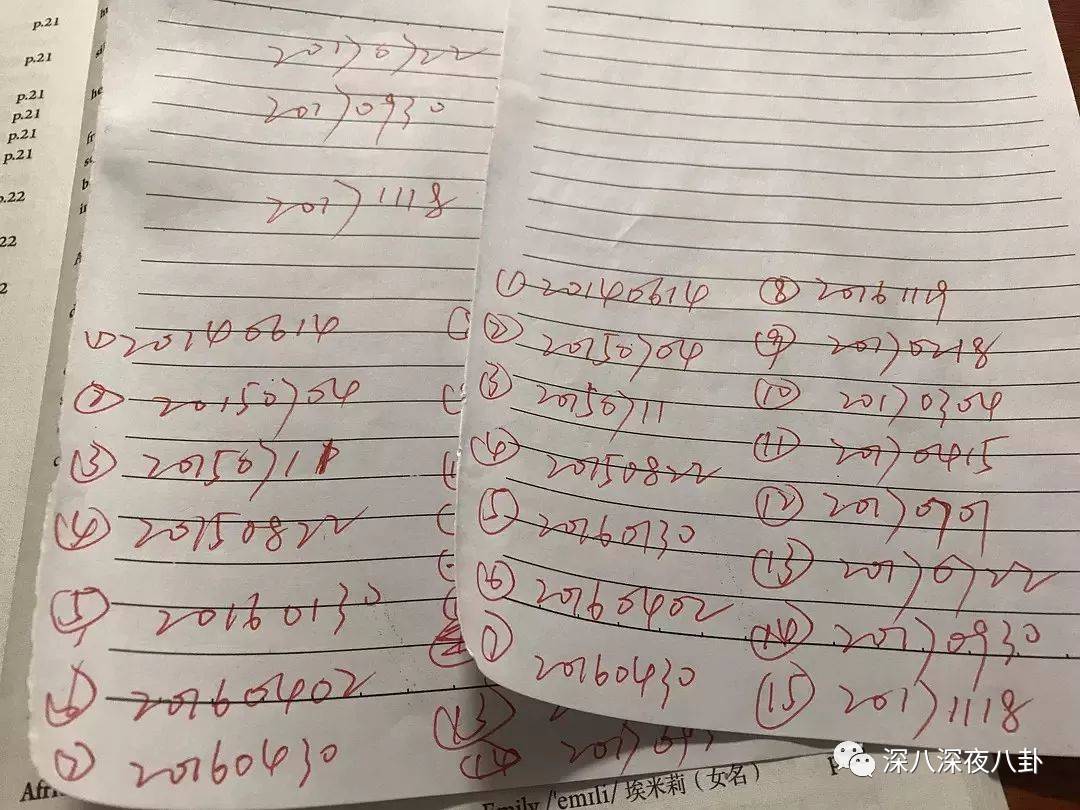 p.21
p.21
p.21
p.21
p.21
p.21
p.22
22
2
20170722
20170930
20171118
① 20140614
② 20150704
③ 20150711
④ 20150822
⑤ 20160130
⑥ 20160402
⑦ 20160430
⑬
⑭
① 20140614
② 20150704
③ 20150711
④ 20150822
⑤ 20160130
⑥ 20160402
⑦ 20160430
⑧ 20161119
⑨ 20170218
⑩ 20170304
⑪ 20170415
⑫ 20170701
⑬ 20170722
⑭ 20170930
⑮ 20171118
深八深夜八卦
Emily /'emɪli/ 埃米莉（女名）